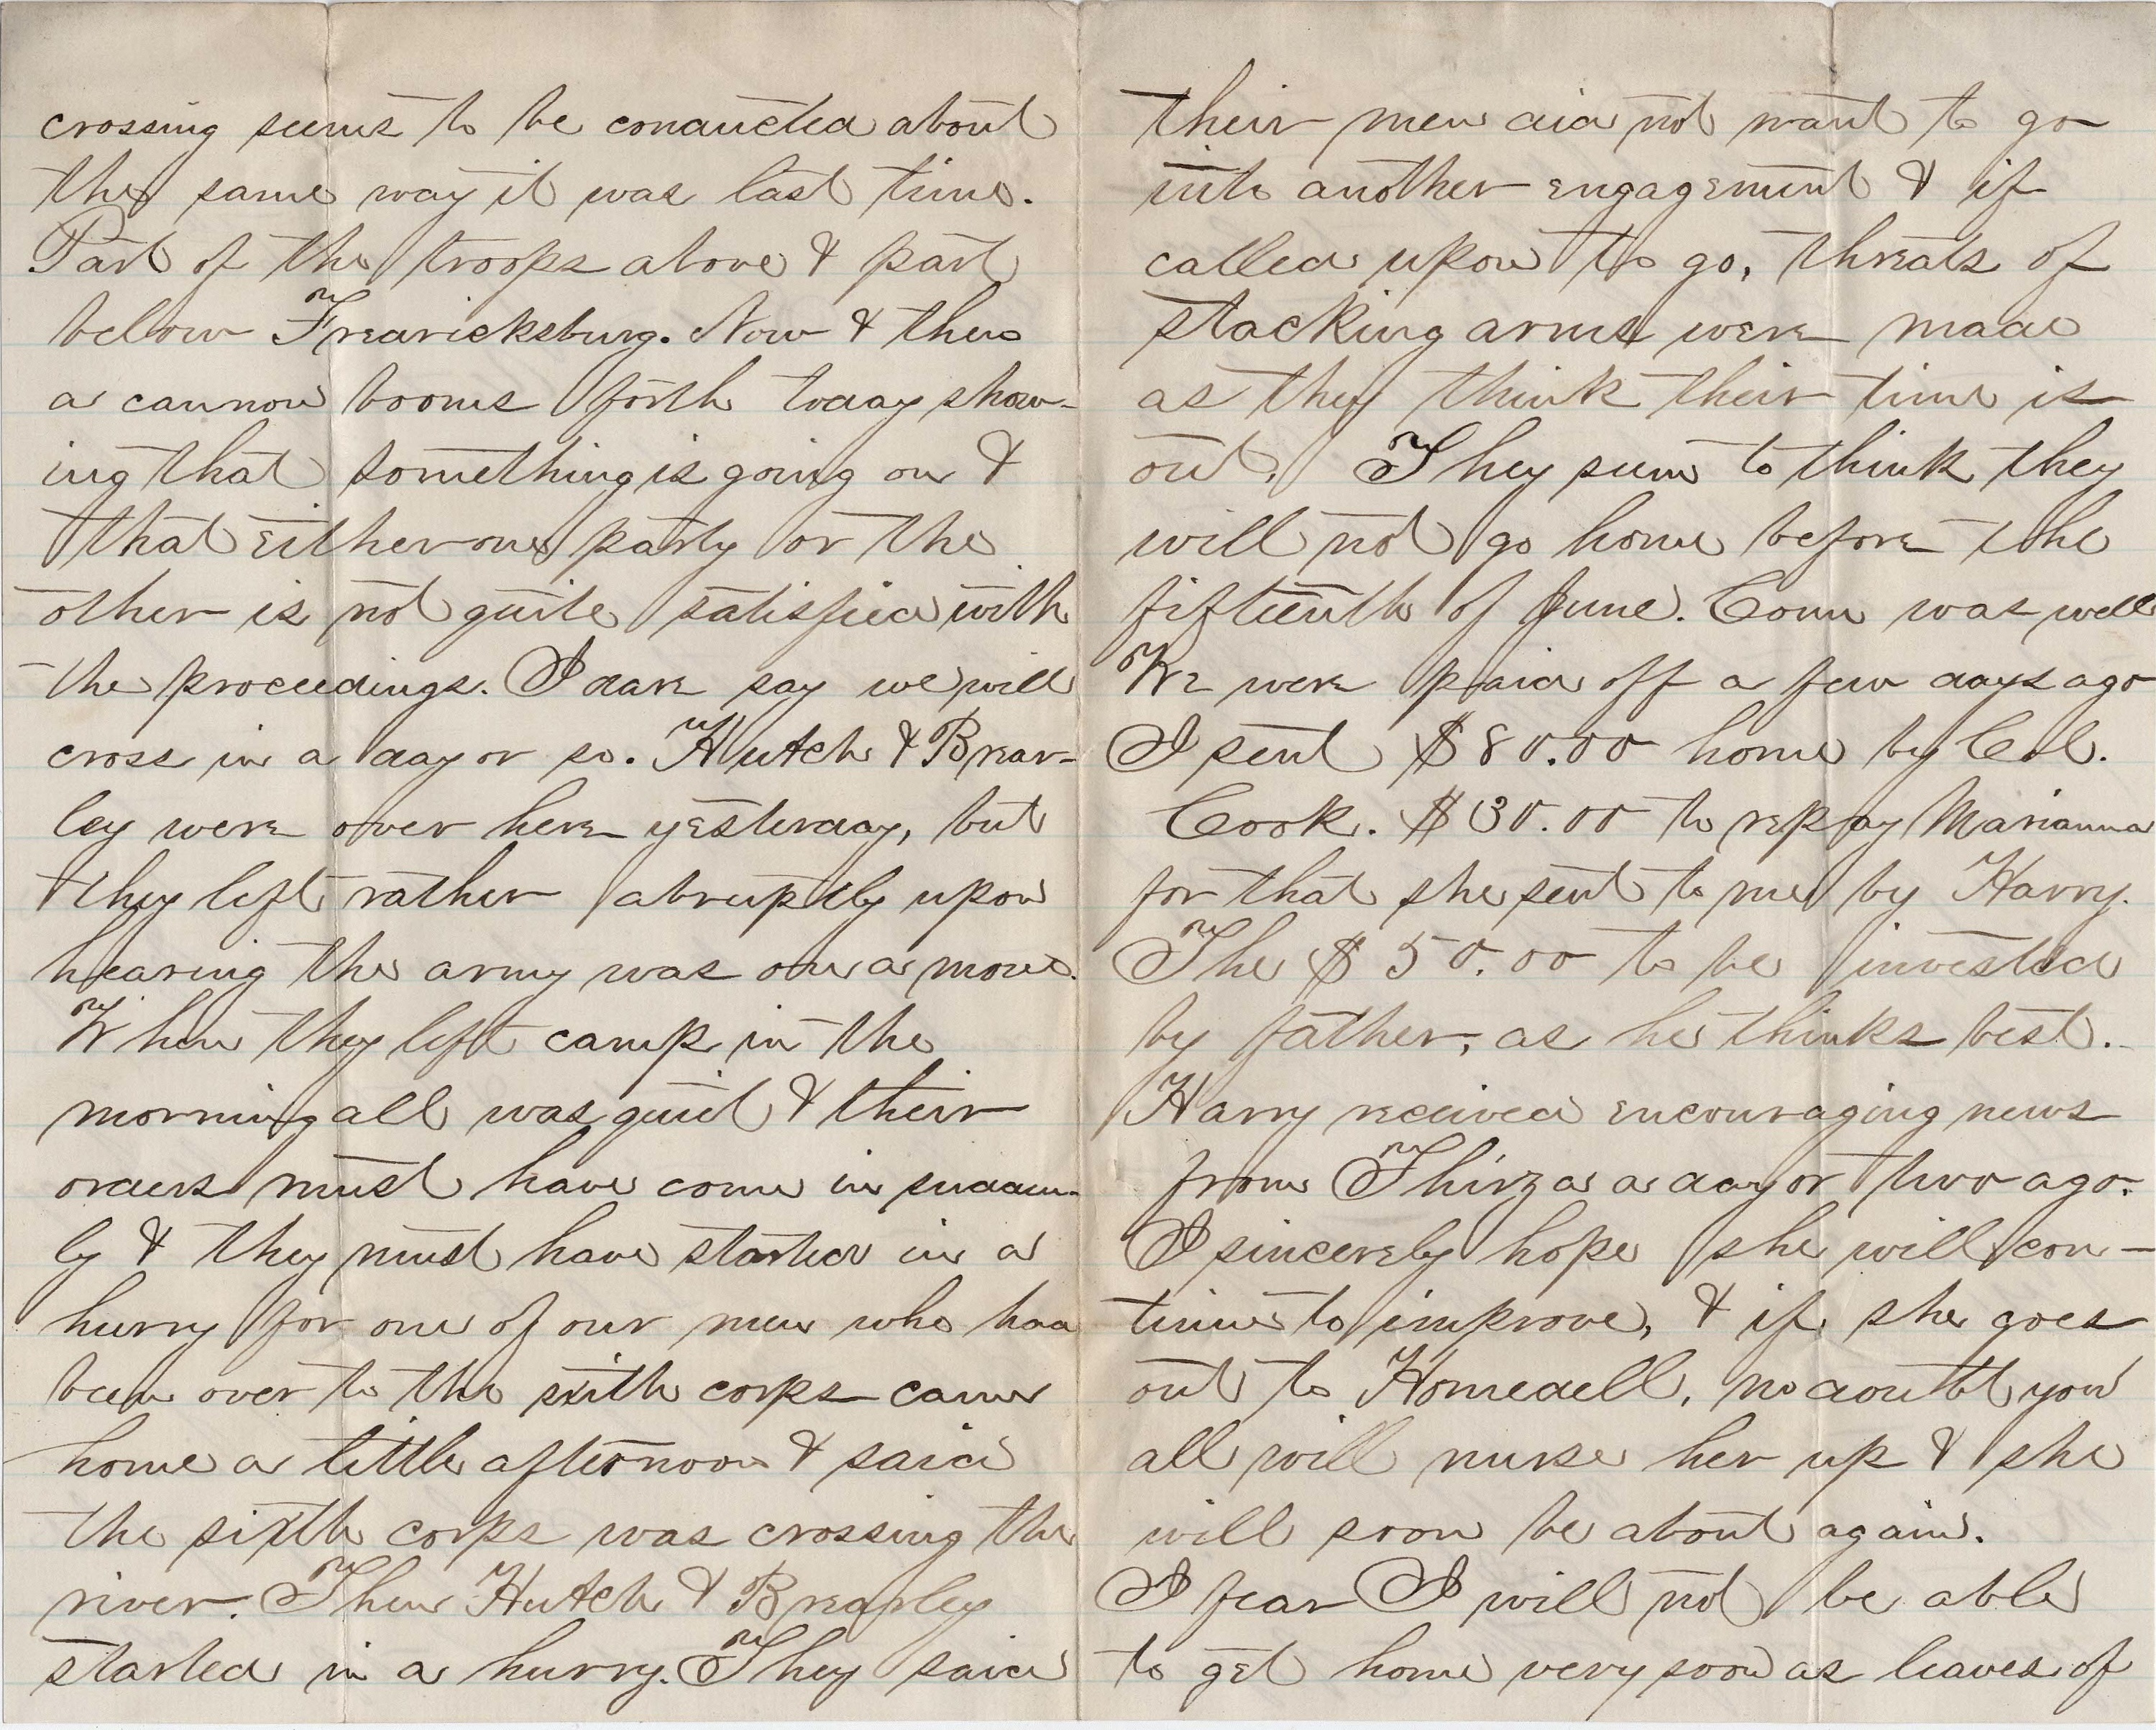 crossing seems to be conducted about
the same way it was last time.
Part of the troops above & part
below Fredricksburg. Now & then
a cannon booms forth today show-
ing that something is going on &
that either one party or the
other is not quite satisfied with
the proceedings. I dare say we will
cross in a day or so. Hutch & Brear-
ley were over here yesterday, but
they left rather abruptly upon
hearing the army was on a move.
When they left camp in the
morning all was quiet & their
orders must have come in sudden-
ly & they must have started in a
hurry for one of our men who had
been over to the sixth corps came
home a little afternoon & said
the sixth corps was crossing the
river. Then Hutch & Brearley
started in a hurry. They said
their men did not want to go
into another engagement & if
called upon to go, threats of
stacking arms were made
as they think their time is
out. They seem to think they
will not go home before the
fifteenth of June. Conn was well
We were paid off a few days ago
I sent $80.00 home by Col.
Cook. $30.00 to repay Marianna
for that she sent to me by Harry.
The $50.00 to be invested
by father, as he thinks best.
Harry received encouraging news
from Thirza a day or two ago.
I sincerely hope she will con-
tinue to improve, & if she goes
out to Homedell, no doubt you
all will nurse her up & she
will soon be about again.
I fear I will not be able
to get home very soon as leaves of